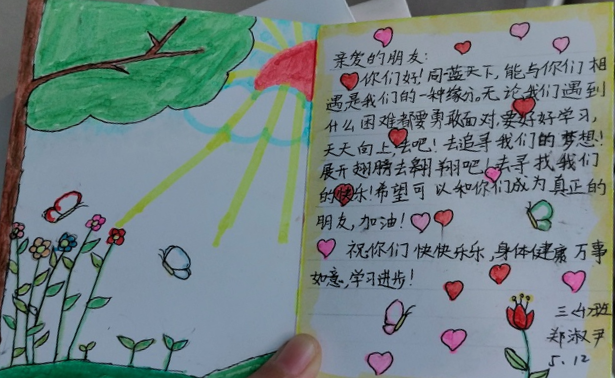 亲爱的朋友:
你们好!同一蓝天下,能与你们相
遇是我们的一种缘分。无论我们遇到
什么困难都要勇敢面对,要好好学习,
天天向上,去吧!去追寻我们的梦想!
展开翅膀去翱翔吧!去寻找我们
的快乐!希望可以和你们成为真正的
朋友,加油!
祝你们快快乐乐,身体健康万事
如意,学习进步!
三〈4〉班
郑淑尹
5.12